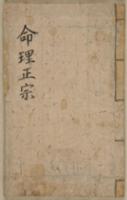 命理正宗